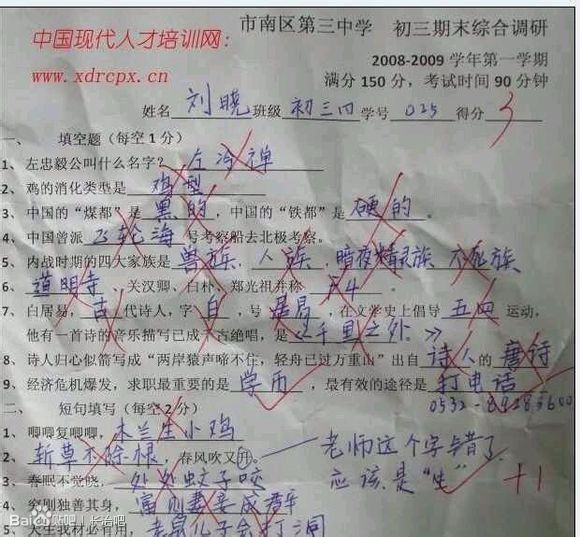 市南区第三中学 初三期末综合调研
中国现代人才培训网:
www.xdrcpx.cn
2008-2009 学年第一学期
满分 150 分，考试时间 90 分钟
姓名 刘晓 班级 初三四 学号 025 得分 3
一、 填空题（每空 1 分）
1、左忠毅公叫什么名字？ 左冷禅
2、鸡的消化类型是 鸡型
3、中国的“煤都”是 黑的 ，中国的“铁都”是 硬的 。
4、中国曾派 飞轮海 号考察船去北极考察。
5、内战时期的四大家族是 兽族，人族、暗夜精灵族 不死族
6、 道明寺 、关汉卿、白朴、郑光祖并称 F4 。
7、白居易， 古 代诗人，字 白 ，号 居易 ，在文学史上倡导 五四 运动，
他有一首诗的音乐描写已成千古绝唱，是 《千里之外。》
8、诗人归心似箭写成“两岸猿声啼不住，轻舟已过万重山”出自 诗人 的 唐诗
9、经济危机爆发，求职最重要的是 学历 ，最有效的途径是 打电话
0532-
二、 短句填写（每空 2 分）
1、唧唧复唧唧， 木兰生小鸡
2、 斩草不除根 ，春风吹又升。 老师这个字错了
应该是“生” +1
3、春眠不觉晓， 处处蚊子咬
4、穷则独善其身， 富则妻妾成群
5、天生我材必有用， 老鼠儿子会打洞
Baidu贴吧 | 长治吧